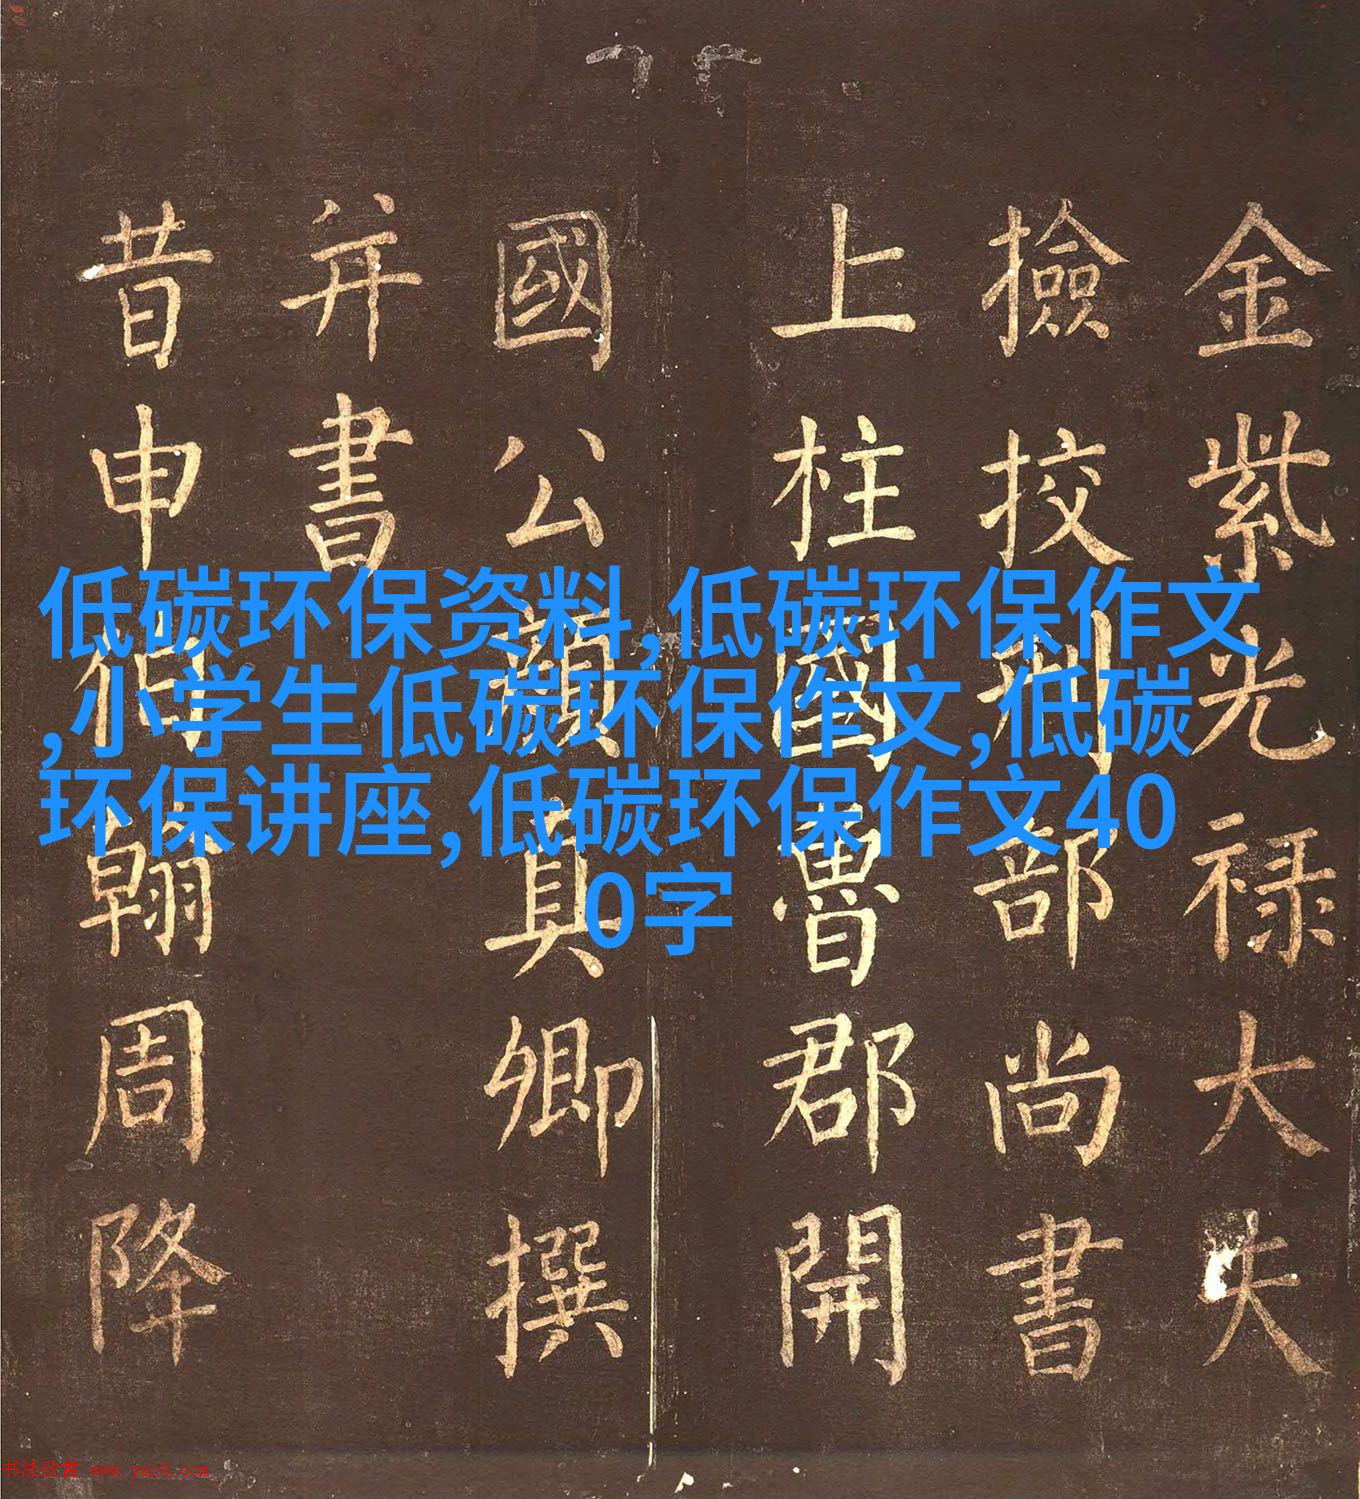 金紫光禄大夫
撿挍刑部尚書
上柱國魯郡開
國公顏真卿撰
并書
昔申伯翰周降
低碳环保资料,低碳环保作文
,小学生低碳环保作文,低碳
环保讲座,低碳环保作文40
0字
书法欣赏 www.yac8.com